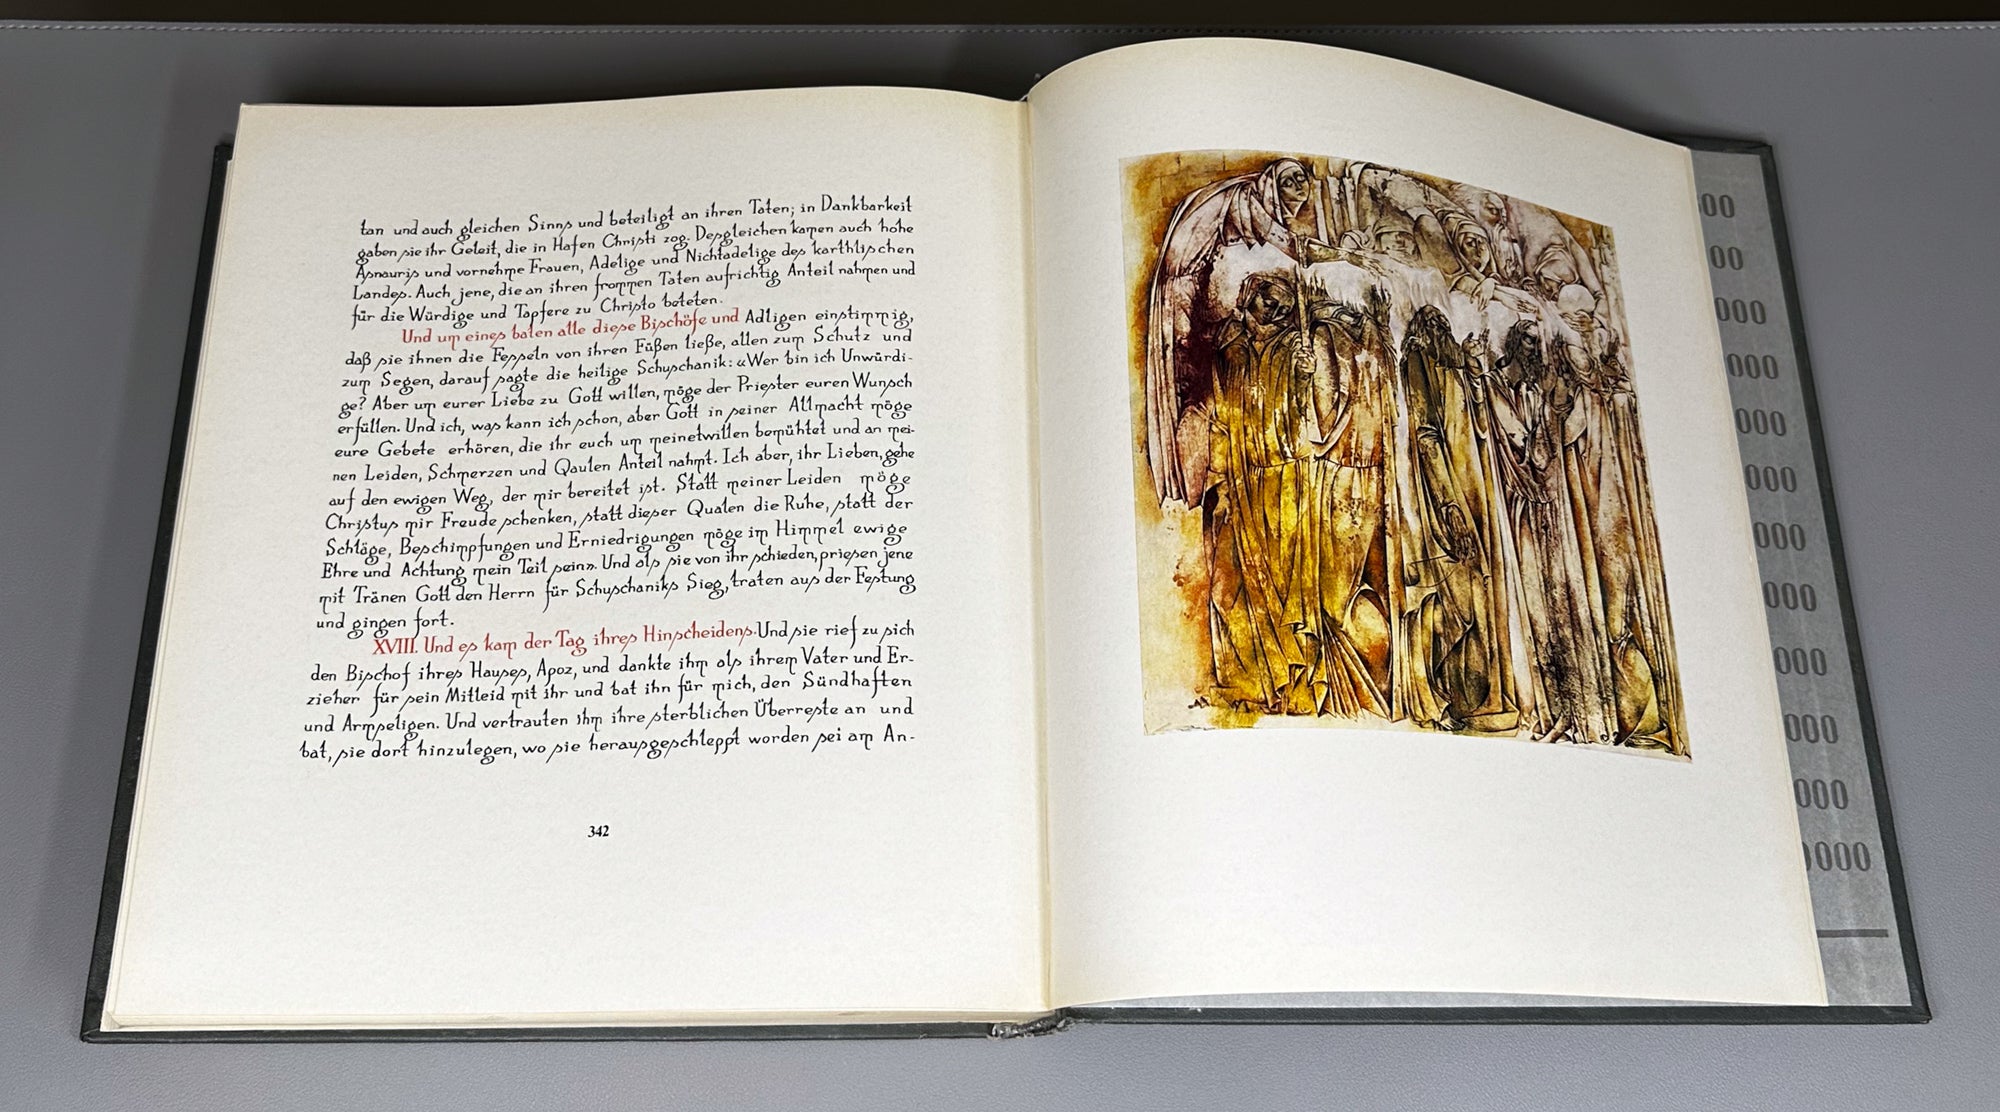 tan und auch gleichen Sinns und beteiligt an ihren Taten; in Dankbarkeit
gaben sie ihr Geleit, die in Hafen Christi zog. Desgleichen kamen auch hohe
Asnauris und vornehme Frauen, Adelige und Nichtadelige des karthlischen
Landes. Auch jene, die an ihren frommen Taten aufrichtig Anteil nahmen und
für die Würdige und Tapfere zu Christo beteten.
Und um eines baten alle diese Bischöfe und Adligen einstimmig,
daß sie ihnen die Fesseln von ihren Füßen ließe, allen zum Schutz und
zum Segen, darauf sagte die heilige Schuschanik: «Wer bin ich Unwürdi-
ge? Aber um eurer Liebe zu Gott willen, möge der Priester euren Wunsch
erfüllen. Und ich, was kann ich schon, aber Gott in seiner Allmacht möge
eure Gebete erhören, die ihr euch um meinetwillen bemühtet und an mei-
nen Leiden, Schmerzen und Qaulen Anteil nahmt. Ich aber, ihr Lieben, gehe
auf den ewigen Weg, der mir bereitet ist. Statt meiner Leiden möge
Christus mir Freude schenken, statt dieser Qualen die Ruhe, statt der
Schläge, Beschimpfungen und Erniedrigungen möge im Himmel ewige
Ehre und Achtung mein Teil sein». Und als sie von ihr schieden, priesen jene
mit Tränen Gott den Herrn für Schuschaniks Sieg, traten aus der Festung
und gingen fort.
XVIII. Und es kam der Tag ihres Hinscheidens. Und sie rief zu sich
den Bischof ihres Hauses, Apoz, und dankte ihm als ihrem Vater und Er-
zieher für sein Mitleid mit ihr und bat ihn für mich, den Sündhaften
und Armseligen. Und vertrauten ihm ihre sterblichen Überreste an und
bat, sie dort hinzulegen, wo sie herausgeschleppt worden sei am An-
342
00
00
000
000
000
000
000
000
000
000
000
0000